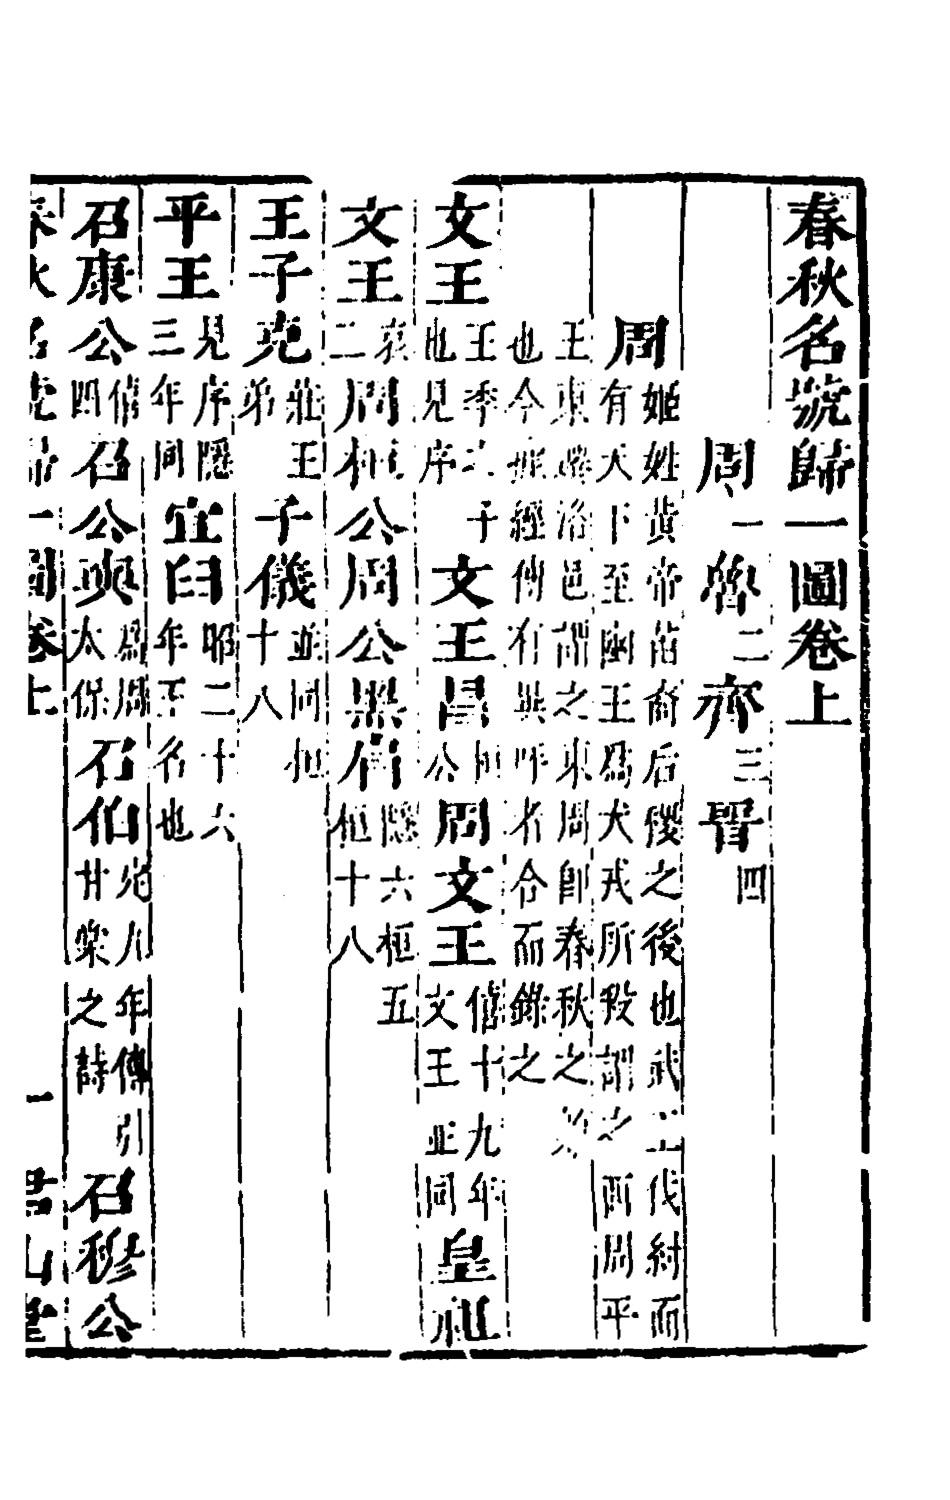 春秋名號歸一圖卷上
周一魯二齊三晉四
周姬姓黃帝苗裔后稷之後也武王伐紂而有天下至幽王爲犬戎所殺謂之西周平
王東遷洛邑謂之東周即春秋之始也今據經傳有異呼者合而錄之
文王王季之子也見序文王昌桓公周文王僖十九年文王並同皇祖
文王哀二周桓公周公黑肩隱六桓五桓十八
王子克莊王弟子儀並同桓十八
平王見序隱三年同宜臼昭二十六年王名也
召康公僖四召公奭爲周太保召伯定九年傳引甘棠之詩召穆公
春秋名號歸一圖卷上 一